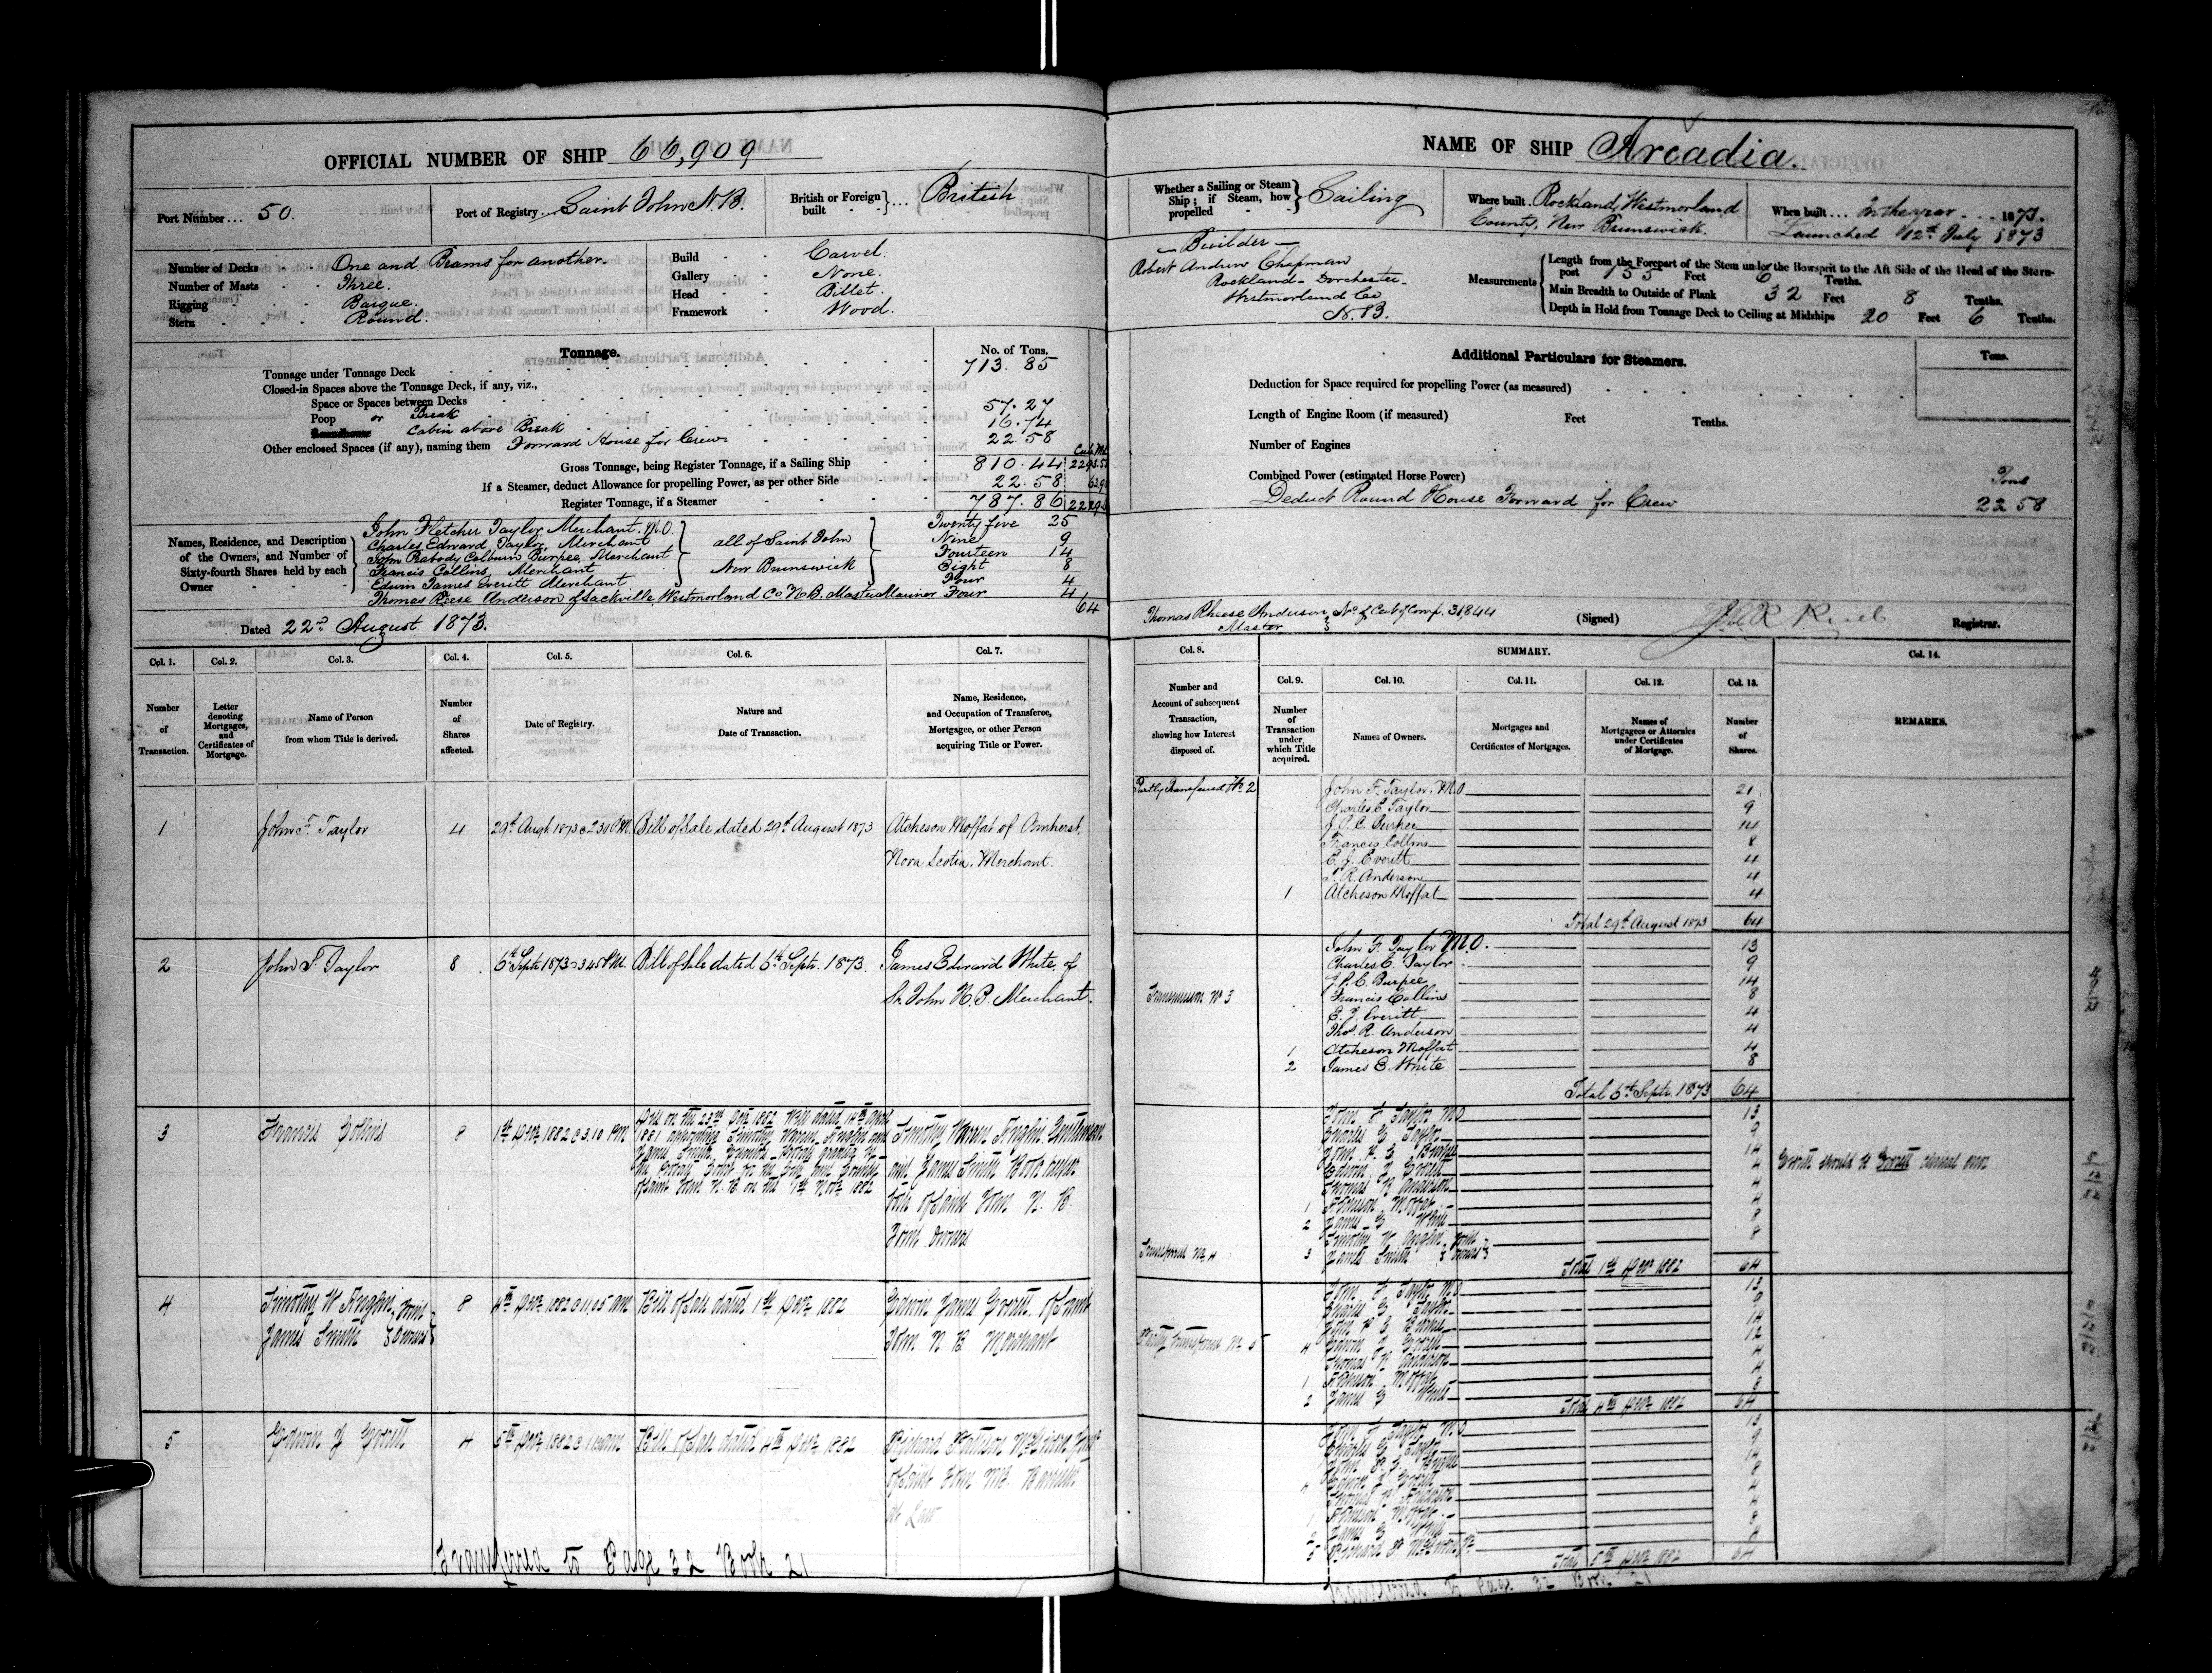 OFFICIAL NUMBER OF SHIP 66,909
Port Number... 50.
Port of Registry... Saint John N.B.
British or Foreign built ... British
Number of Decks One and Beams for another.
Number of Masts Three.
Rigging Barque.
Stern Round.
Build Carvel.
Gallery None.
Head Billet.
Framework Wood.
Tonnage.
No. of Tons.
Tonnage under Tonnage Deck 713.85
Closed-in Spaces above the Tonnage Deck, if any, viz.,
Space or Spaces between Decks
Poop or Break 57.27
Cabin above Break 16.74
Other enclosed Spaces (if any), naming them Forward House for Crew 22.58
Gross Tonnage, being Register Tonnage, if a Sailing Ship 810.44
If a Steamer, deduct Allowance for propelling Power, as per other Side 22.58
Register Tonnage, if a Steamer 787.86
Names, Residence, and Description of the Owners, and Number of Sixty-fourth Shares held by each Owner
John Fletcher Taylor, Merchant. M.O. Twenty five 25
Charles Edward Taylor, Merchant Nine 9
John Peabody Colburn Burpee, Merchant Fourteen 14
Francis Collins, Merchant Eight 8
Edwin James Everitt Merchant Four 4
all of Saint John New Brunswick
Thomas Reese Anderson of Sackville, Westmorland Co N.B. Master Mariner Four 4
64
Dated 22nd August 1873.
Col. 1. Number of Transaction.
Col. 2. Letter denoting Mortgages, and Certificates of Mortgage.
Col. 3. Name of Person from whom Title is derived.
Col. 4. Number of Shares affected.
Col. 5. Date of Registry.
Col. 6. Nature and Date of Transaction.
Col. 7. Name, Residence, and Occupation of Transferee, Mortgagee, or other Person acquiring Title or Power.
1 John F. Taylor 4 29th Augt 1873 @ 2.30 P.M. Bill of Sale dated 29th August 1873 Atcheson Moffat of Amherst,
Nova Scotia. Merchant.
2 John F. Taylor 8 6th Septr 1873 @ 3.45 P.M. Bill of Sale dated 6th Septr. 1873. James Edward White, of
St. John N.B. Merchant.
3 Francis Collins 8 1st 1882 @ 3.10 PM
1881 appointing Timothy Warren Anglin and
James Smith
of Saint John N.B. on the 1st 1882
Timothy Warren Anglin Gentleman
and James Smith
both of Saint John N.B.
Joint Owners
4 Timothy W Anglin James Smith Joint Owners 8 4th 1882 @ 11.05 am Bill of Sale dated 1st 1882 Edwin James Everett of Saint
John N B Merchant
5 Edwin J Everett 4 5th 1882 @ am Bill of Sale dated 4th 1882 Richard
of Saint John NB. Barrister
at Law
Transferred to Page 32 Book 21
NAME OF SHIP Arcadia.
Whether a Sailing or Steam Ship; if Steam, how propelled Sailing
Where built Rockland, Westmorland
County, New Brunswick.
When built ... In the year 1873.
Launched 12th July 1873
Builder
Robert Andrew Chapman
Rockland - Dorchester -
Westmorland Co
N.B.
Measurements
Length from the Forepart of the Stem under the Bowsprit to the Aft Side of the Head of the Stern-post 155 Feet 6 Tenths.
Main Breadth to Outside of Plank 32 Feet 8 Tenths.
Depth in Hold from Tonnage Deck to Ceiling at Midships 20 Feet 6 Tenths.
Additional Particulars for Steamers.
Tons.
Deduction for Space required for propelling Power (as measured)
Length of Engine Room (if measured) Feet Tenths.
Number of Engines
Combined Power (estimated Horse Power)
Tons
Deduct Round House Forward for Crew 22.58
Thomas Rheese Anderson, No. of Cert of Comp. 31,844
Master
(Signed) Registrar.
Col. 8. Number and Account of subsequent Transaction, showing how Interest disposed of.
SUMMARY.
Col. 9. Number of Transaction under which Title acquired.
Col. 10. Names of Owners.
Col. 11. Mortgages and Certificates of Mortgages.
Col. 12. Names of Mortgagees or Attornies under Certificates of Mortgage.
Col. 13. Number of Shares.
Col. 14. REMARKS.
Partly Transferred No. 2
John F. Taylor. M.O 21
Charles E Taylor 9
J. P. C. Burpee 14
Francis Collins 8
E. J. Everitt 4
T. R. Anderson 4
1 Atcheson Moffat 4
Total 29th August 1873 64
John F. Taylor M.O. 13
Charles E. Taylor 9
J. P. C. Burpee 14
Transmission No 3 Francis Collins 8
E. J. Everitt 4
Thos. R. Anderson 4
1 Atcheson Moffat 4
2 James E. White 8
Total 6th Septr. 1873 64
John F Taylor MO 13
Charles E Taylor 9
John P. C. Burpee 14
Edwin J Everett 4
Thomas R Anderson 4
1 Atcheson Moffat 4
2 James E White 8
Timothy W Anglin
3 James Smith Joint Owners 8
Transferred No 4
Total 1st 1882 64
Everitt should be Everett clerical error
John F Taylor MO 13
Charles E Taylor 9
John P C Burpee 14
4 Edwin J Everett 12
Thomas R Anderson 4
1 Atcheson Moffat 4
2 James E White 8
Partly Transferred No 5
Total 4th 1882 64
John F Taylor MO 13
Charles E Taylor 9
John P. C. Burpee 14
4 Edwin J Everett 8
Thomas R Anderson 4
1 Atcheson Moffat 4
2 James E White 8
5 Richard 4
Total 5th 1882 64
Transferred to Page 32 Book 21